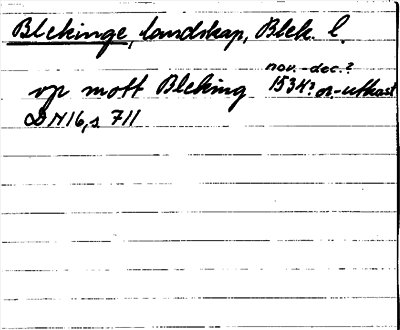 Blekinge, landskap, Blek. l.
nov.-dec.?
vp mott Bleking 1534? or.-utkast
DN16, s 711